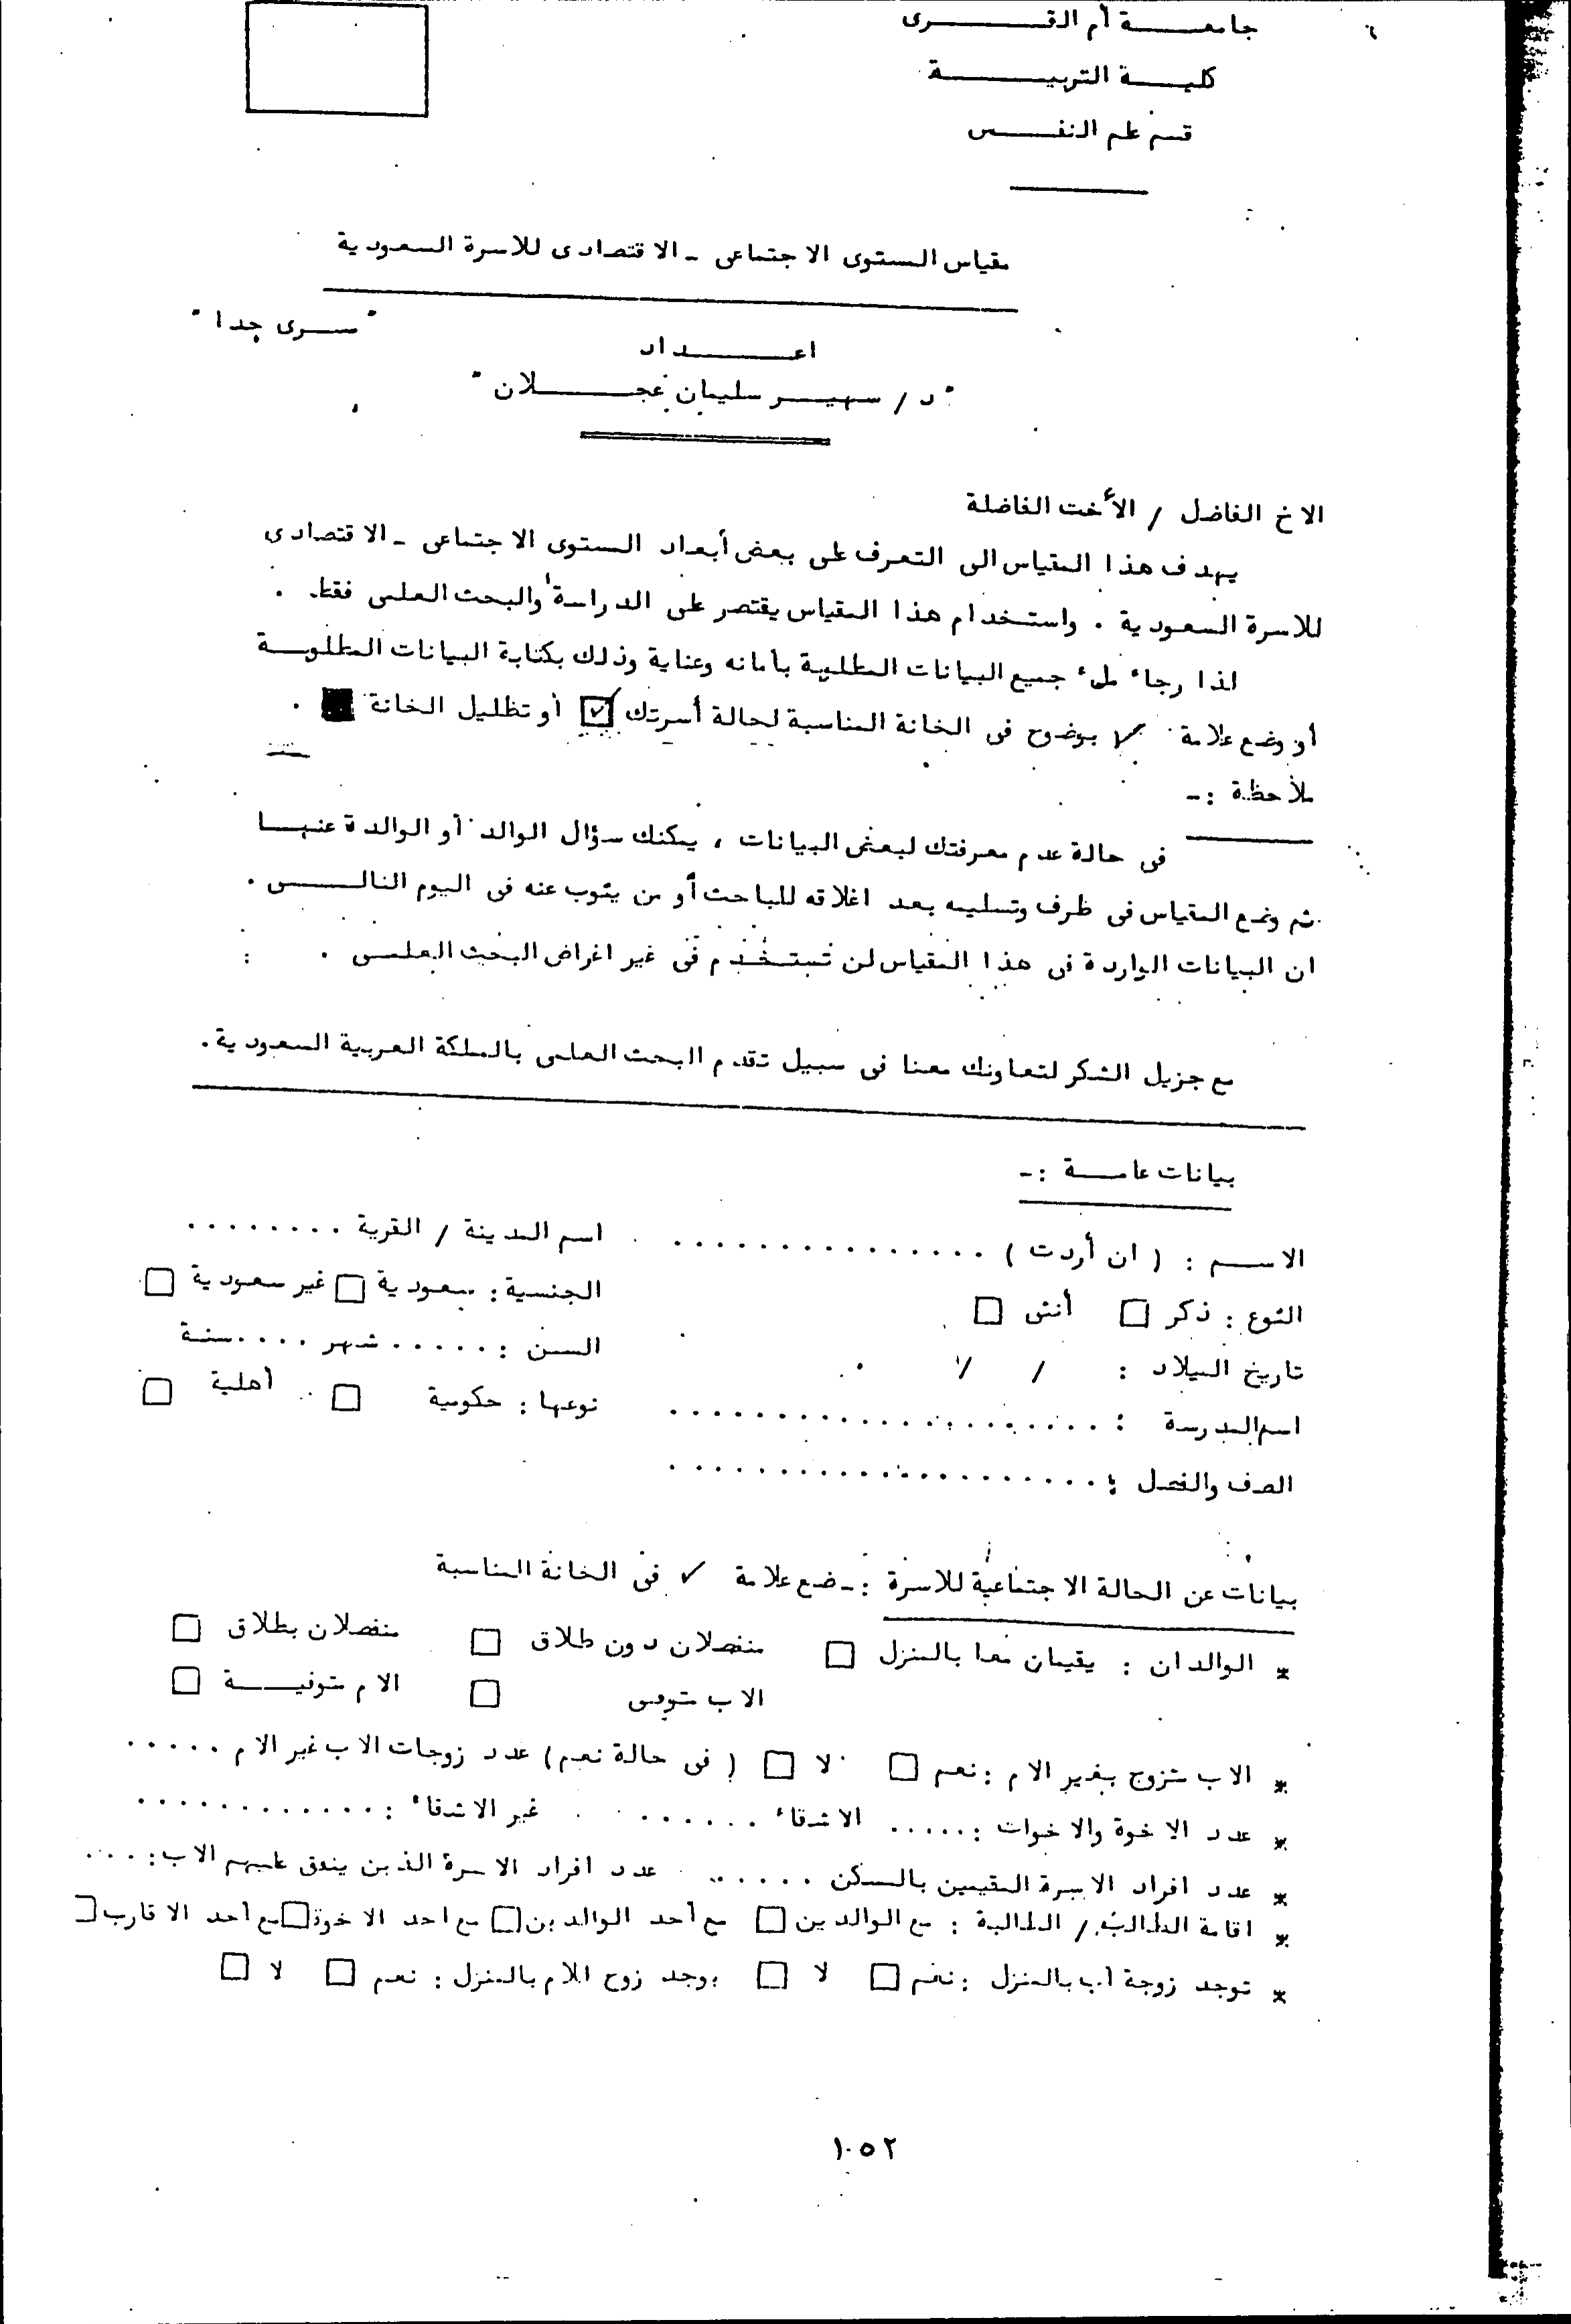 جامعة أم القرى
كلية التربية
قسم علم النفس
مقياس المستوى الاجتماعى - الاقتصادى للاسرة السعودية
" سرى جدا "
اعداد
" د / سهير سليمان عجلان "
الاخ الفاضل / الأخت الفاضلة
يهدف هذا المقياس الى التعرف على بعض أبعاد المستوى الاجتماعى - الاقتصادى
للاسرة السعودية . واستخدام هذا المقياس يقتصر على الدراسة والبحث العلمى فقط .
لذا رجاء ملء جميع البيانات المطلبة بأمانه وعناية وذلك بكتابة البيانات المطلوبة
أو وضع علامة ✓ بوضوح فى الخانة المناسبة لحالة أسرتك ☑ أو تظليل الخانة ■ .
ملاحظة :-
فى حالة عدم معرفتك لبعض البيانات ، يمكنك سؤال الوالد أو الوالدة عنها
ثم وضع المقياس فى ظرف وتسليمه بعد اغلاقه للباحث أو من ينوب عنه فى اليوم التالى .
ان البيانات الواردة فى هذا المقياس لن تستخدم فى غير اغراض البحث العلمى .
مع جزيل الشكر لتعاونك معنا فى سبيل تقدم البحث العلمى بالمملكة العربية السعودية .
بيانات عامة :-
الاسم : ( ان أردت ) ............... اسم المدينة / القرية ........
النوع : ذكر □ أنثى □ الجنسية : سعودية □ غير سعودية □
تاريخ الميلاد : / / السن : ..... شهر .... سنة
اسم المدرسة : ................ نوعها : حكومية □ أهلية □
الصف والفصل : ................
بيانات عن الحالة الاجتماعية للاسرة :- ضع علامة ✓ فى الخانة المناسبة
* الوالدان : يقيمان معا بالمنزل □ منفصلان دون طلاق □ منفصلان بطلاق □
الاب متوفى □ الام متوفية □
* الاب متزوج بغير الام : نعم □ لا □ ( فى حالة نعم ) عدد زوجات الاب غير الام .....
* عدد الاخوة والاخوات : ..... الاشقاء ...... غير الاشقاء : ............
* عدد افراد الاسرة المقيمين بالمسكن ...... عدد افراد الاسرة الذين ينفق عليهم الاب : ....
* اقامة الطالب / الطالبة : مع الوالدين □ مع أحد الوالدين □ مع احد الاخوة □ مع أحد الاقارب □
* توجد زوجة أب بالمنزل : نعم □ لا □ يوجد زوج للام بالمنزل : نعم □ لا □
١٠٥٢